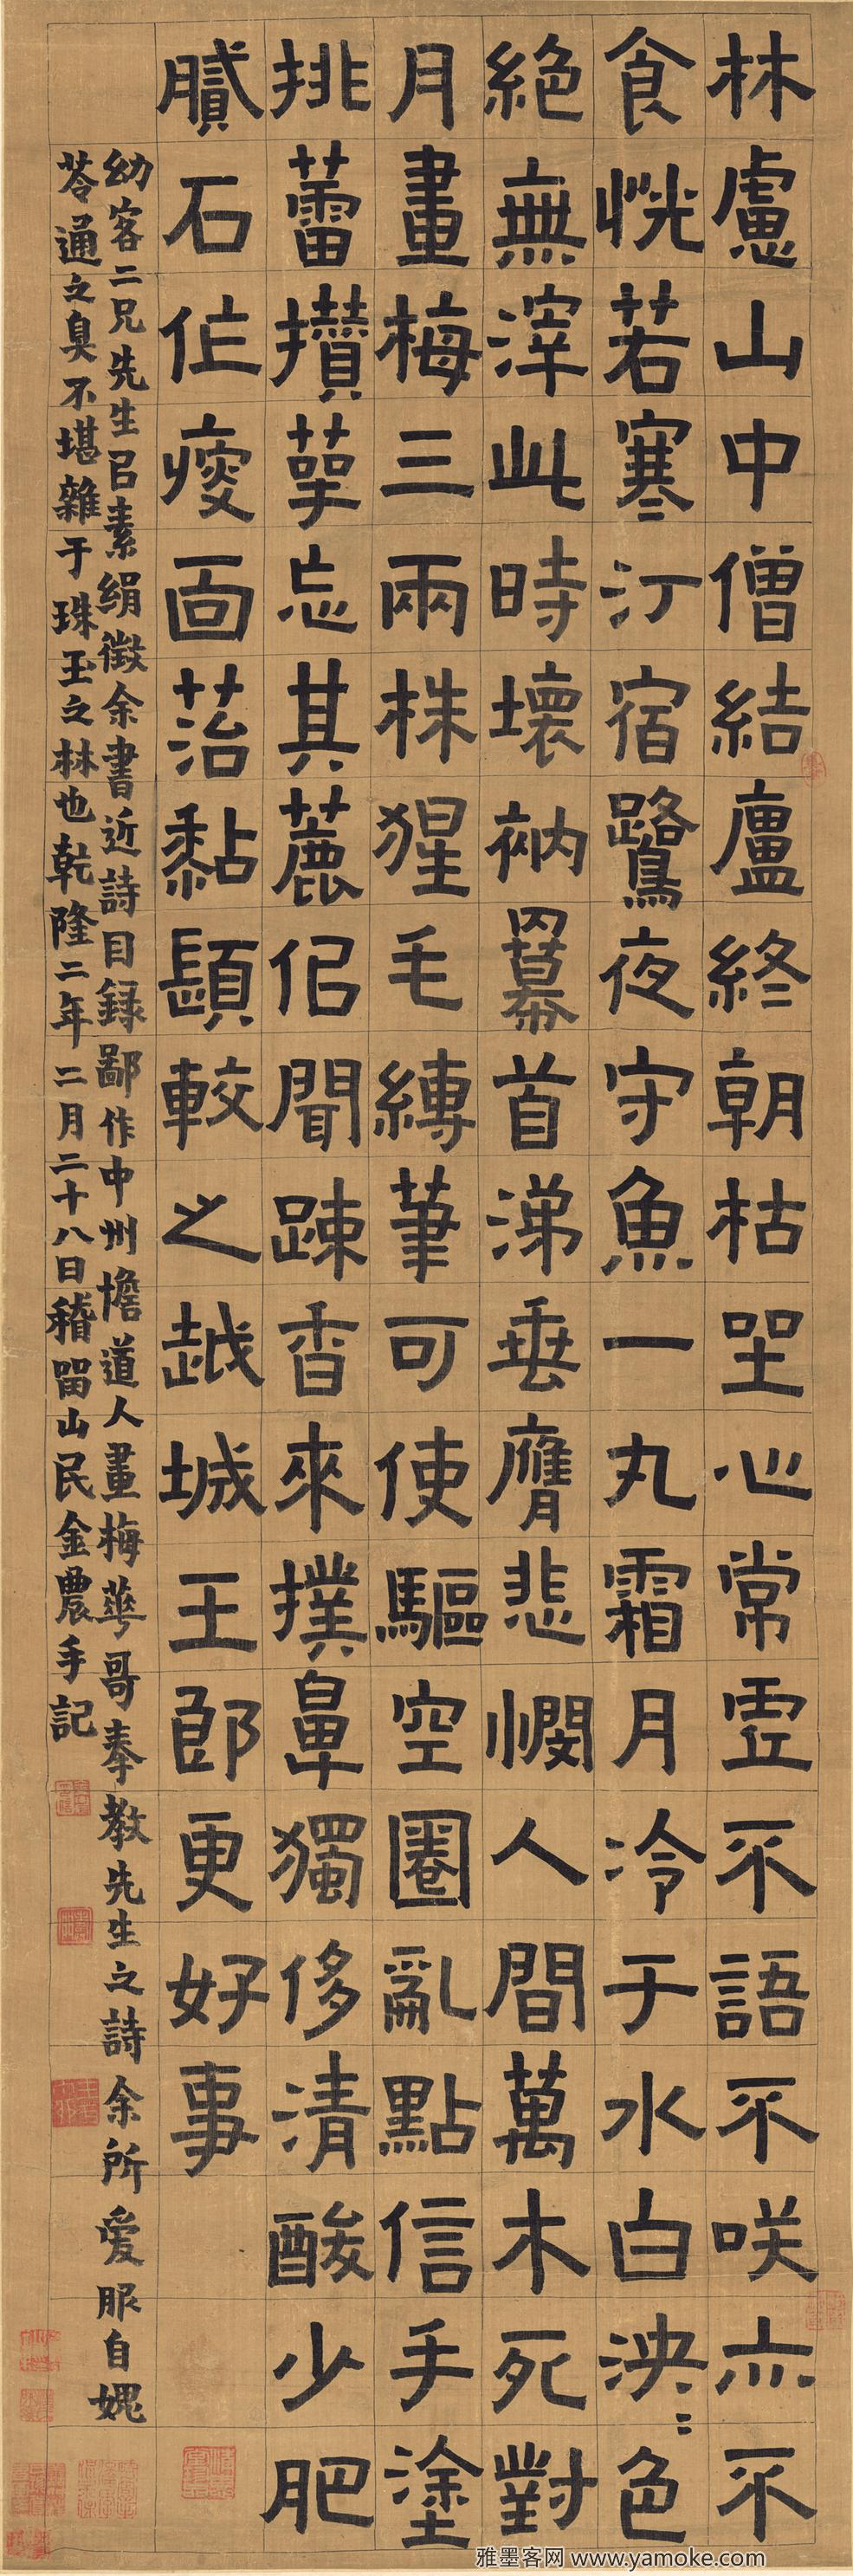 林慮山中僧結廬終朝枯坐心常虛不語不咲亦不
食恍若寒汀宿鷺夜守魚一丸霜月冷于水白泱〻色
絶無滓此時壞衲冪首涕垂膺悲憫人間萬木死對
月畫梅三兩株猩毛縛筆可使驅空圈亂點信手塗
挑蕾攢萼忘其麤但聞踈香來撲鼻獨侈清酸少肥
膩石作瘦面苔黏顋較之越城王郎更好事
幼客二兄先生以素絹徵余書近詩目録鄙作中州憺道人畫梅華哥奉教先生之詩余所愛服自媿
苓通之臭不堪雜于珠玉之林也乾隆二年二月二十八日稽畱山民金農手記
雅墨客网 www.yamoke.com